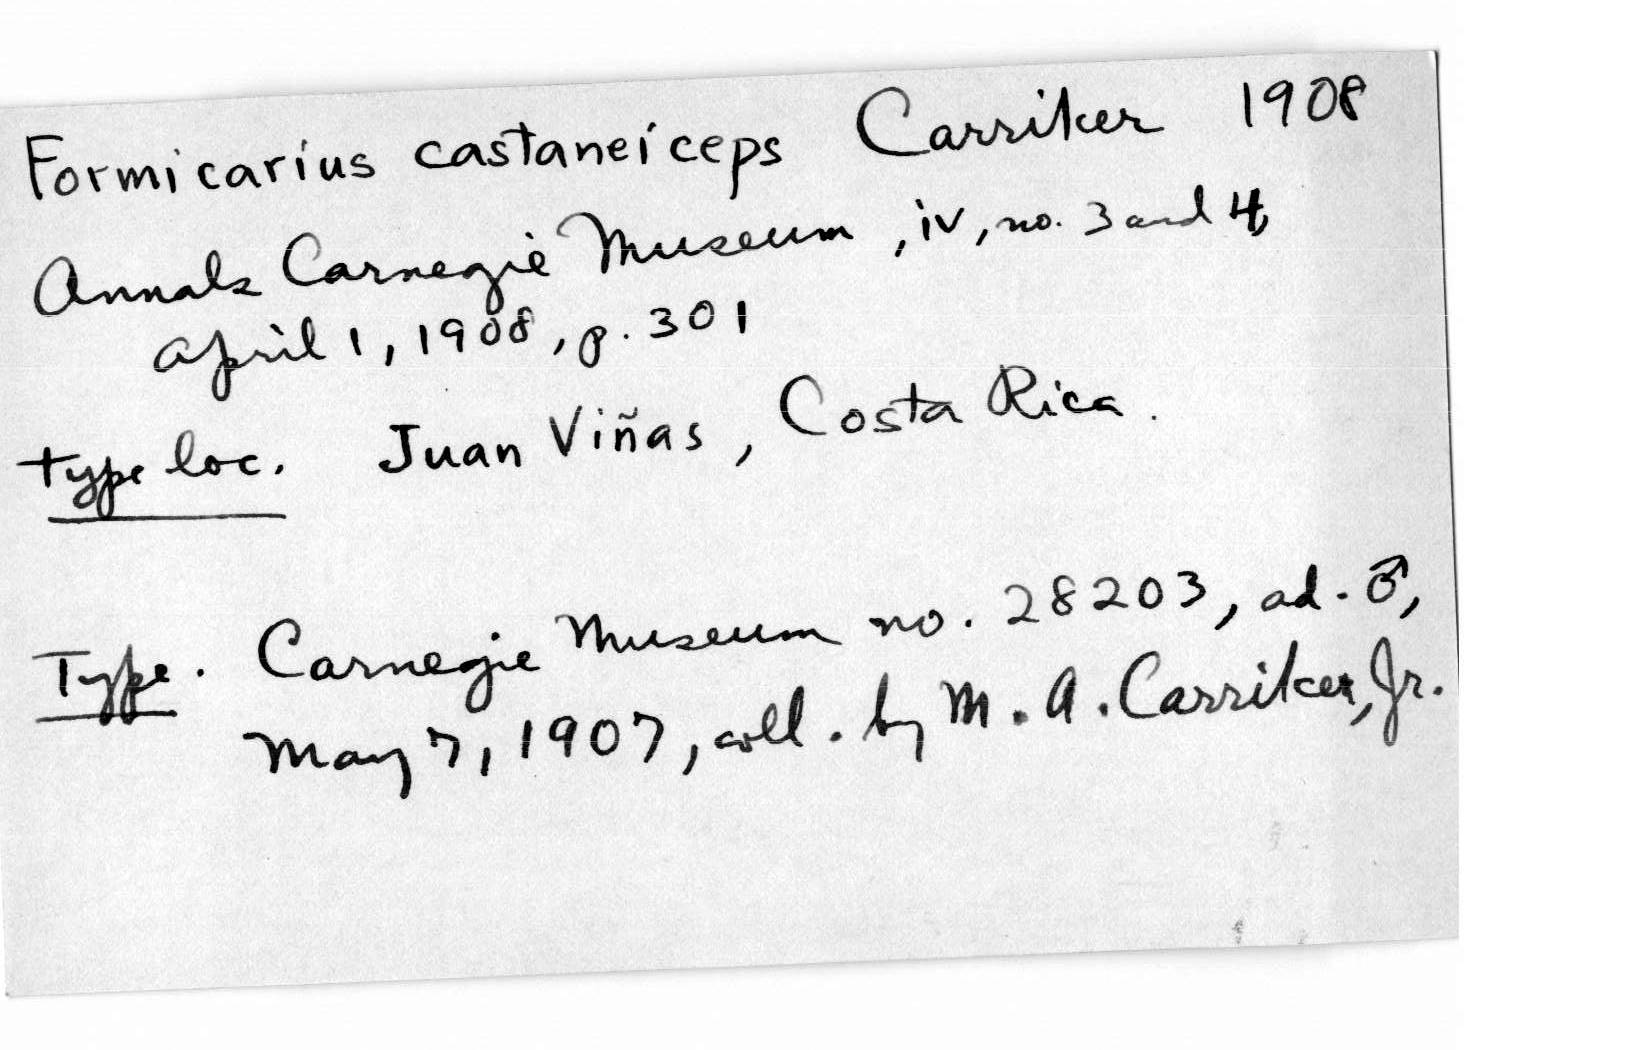 Formicarius castaneiceps Carriker 1908
Annals Carnegie Museum, iv, no. 3 and 4,
April 1, 1908, p. 301
Type loc. Juan Viñas, Costa Rica.
Type. Carnegie Museum no. 28203, ad. ♂,
May 7, 1907, coll. by M. A. Carriker, Jr.